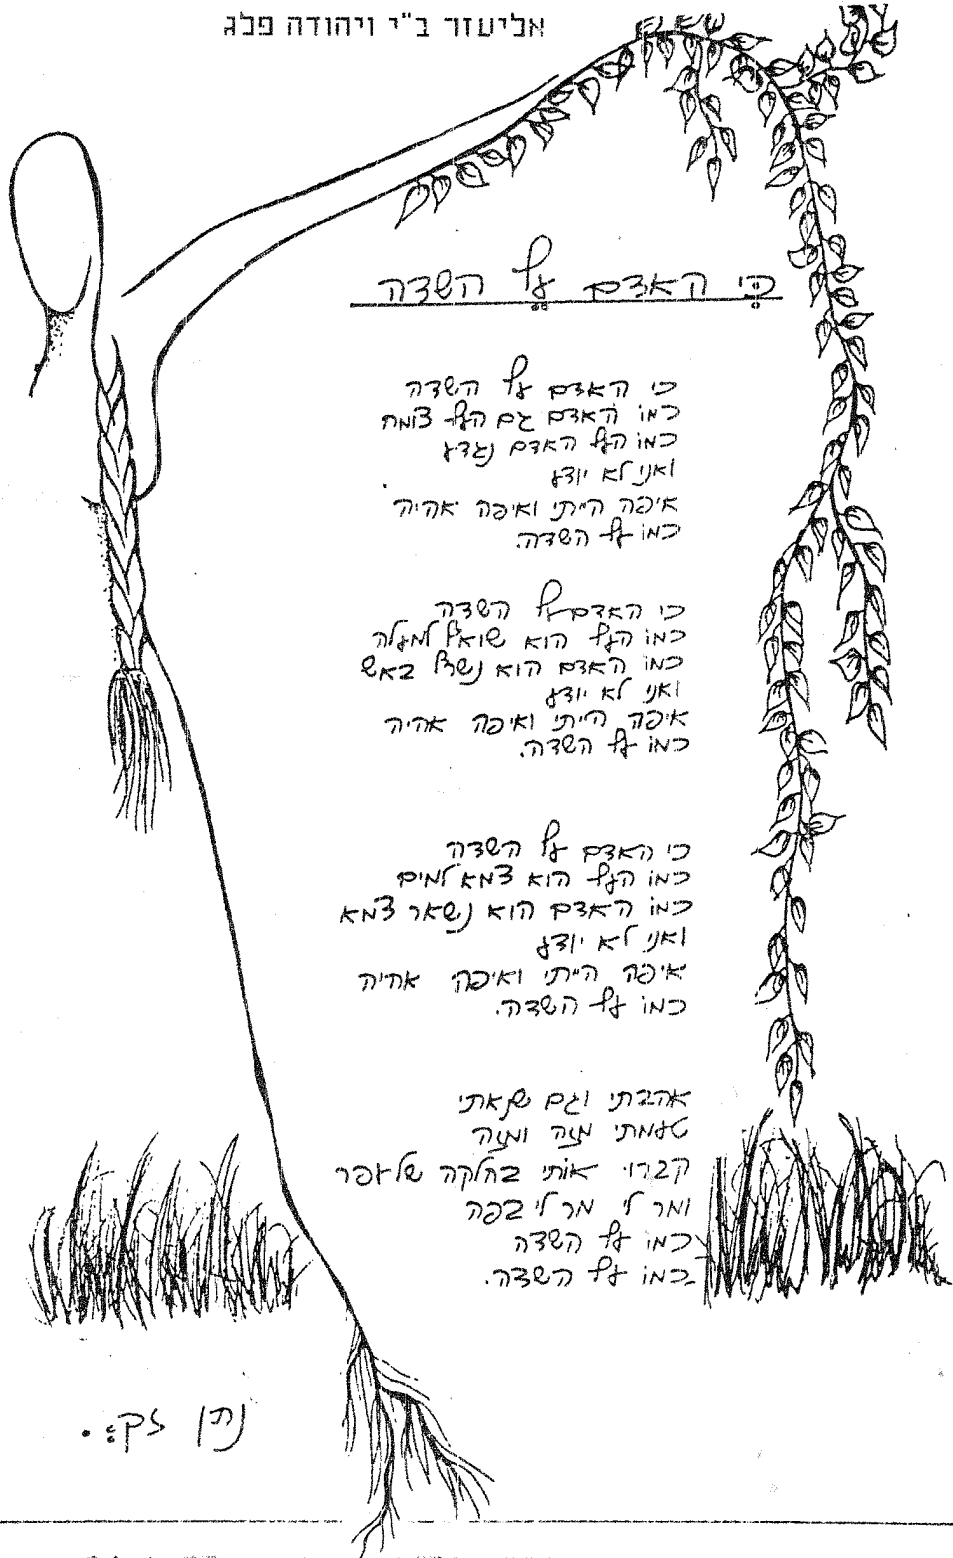 אליעזר ב"י ויהודה פלג
כי האדם עץ השדה
כי האדם עץ השדה
כמו האדם גם העץ צומח
כמו העץ האדם נגדע
ואני לא יודע
איפה הייתי ואיפה אהיה
כמו עץ השדה.
כי האדם עץ השדה
כמו העץ הוא שואף למעלה
כמו האדם הוא נשרף באש
ואני לא יודע
איפה הייתי ואיפה אהיה
כמו עץ השדה.
כי האדם עץ השדה
כמו העץ הוא צמא למים
כמו האדם הוא נשאר צמא
ואני לא יודע
איפה הייתי ואיפה אהיה
כמו עץ השדה.
אהבתי וגם שנאתי
טעמתי מזה ומזה
קברו אותי בחלקה של עפר
ומר לי מר לי בפה
כמו עץ השדה
כמו עץ השדה.
נתן זך.